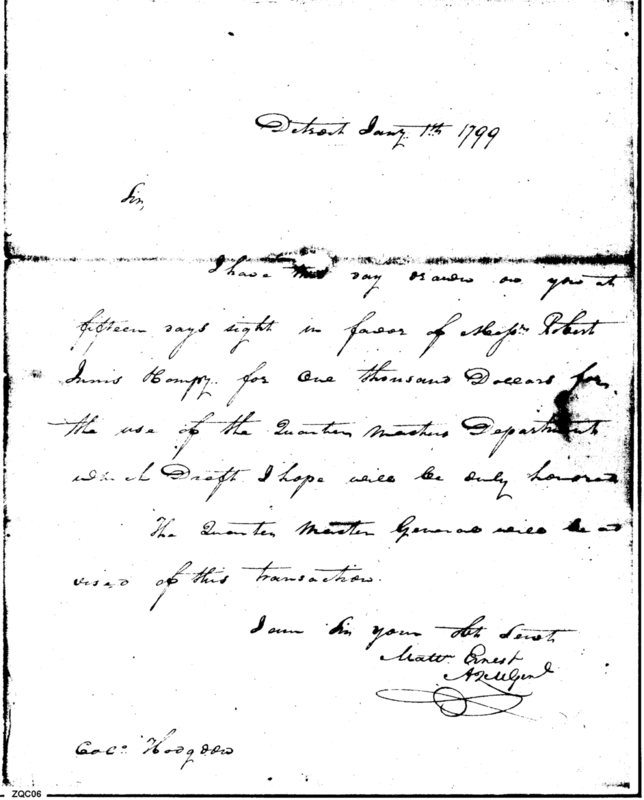 Detroit Jany. 1th 1799
Sir,
I have this day drawn on you at
fifteen days sight in favor of Messrs. Robert
Innis & Compy. for One thousand Dollars for
the use of the Quarter Masters Department
which Draft I hope will be duly honored
The Quarter Master General will be ad
vised of this transaction.
I am Sir your Obt Servt
Mattw. Ernest
AQMGenl
Colo. Hodgdon
ZQC06